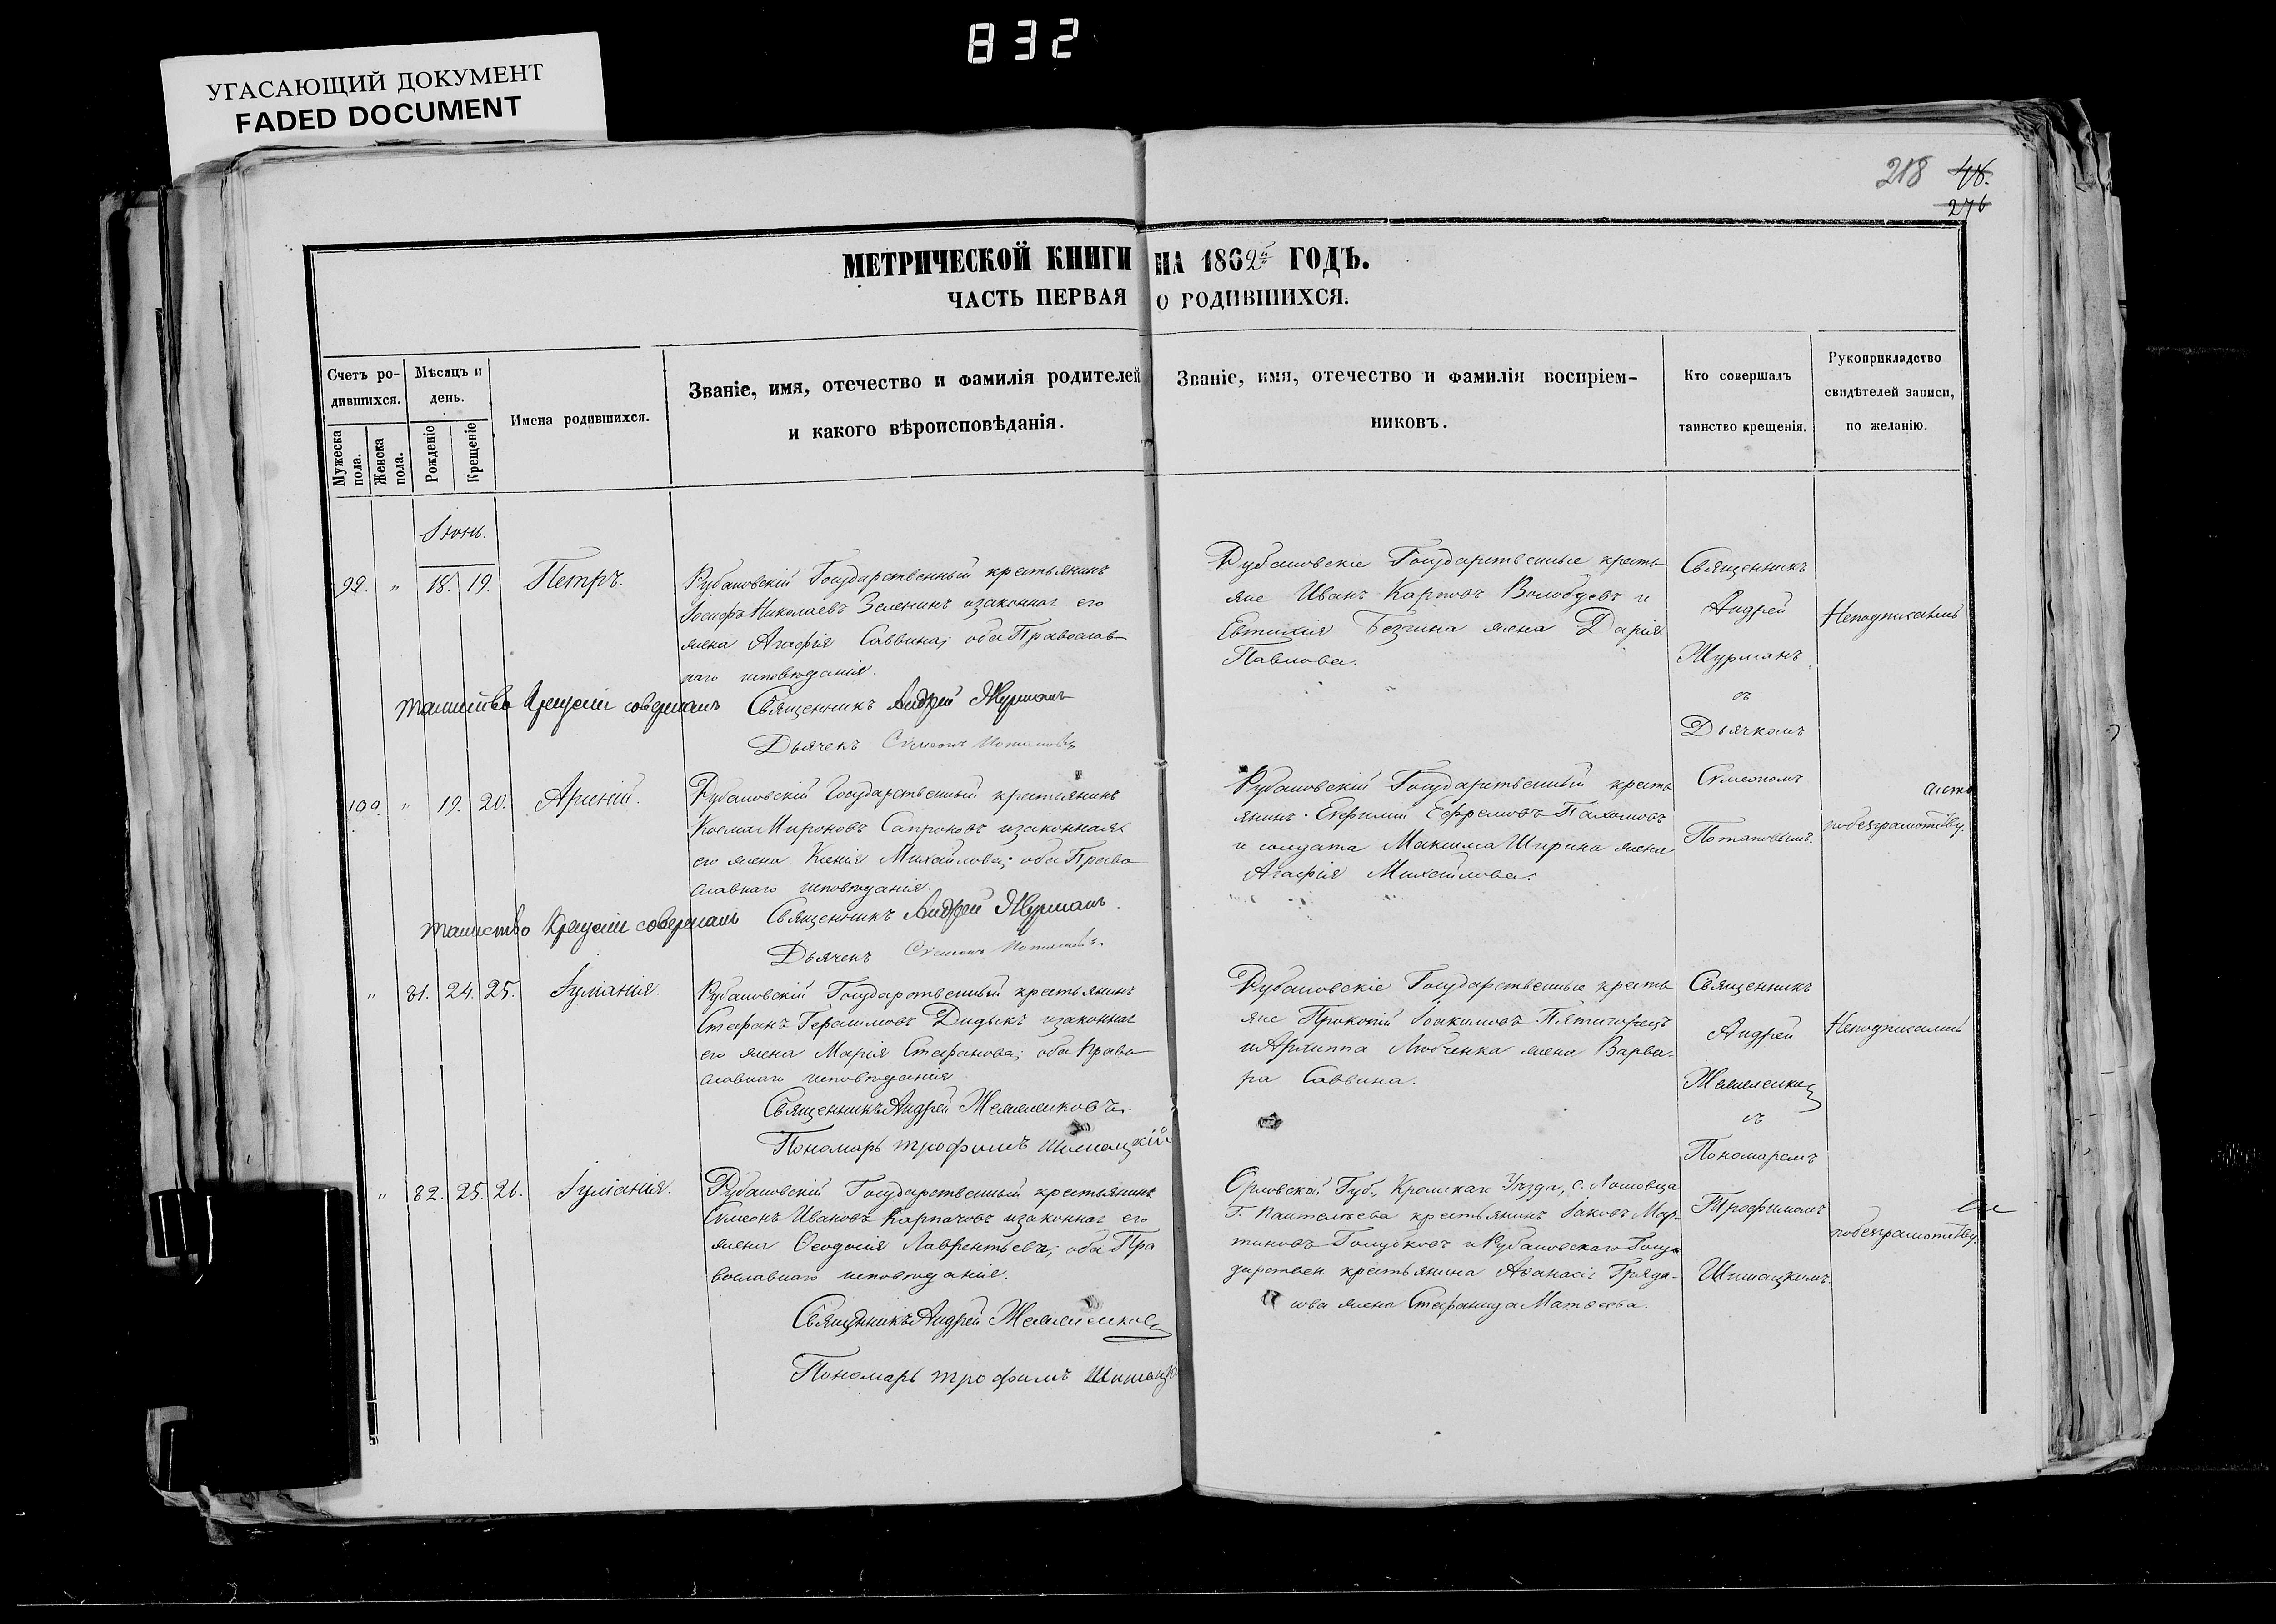 832
УГАСАЮЩИЙ ДОКУМЕНТ
FADED DOCUMENT
218 48.
276
МЕТРИЧЕСКОЙ КНИГИ НА 1862й ГОДЪ.
ЧАСТЬ ПЕРВАЯ О РОДИВШИХСЯ.
Счетъ ро-
дившихся.
Мужеска пола.
Женска пола.
Мѣсяцъ и
день.
Рожденіе
Крещеніе
Имена родившихся.
Званіе, имя, отечество и фамилія родителей
и какого вѣроисповѣданія.
Званіе, имя, отечество и фамилія воспріем-
никовъ.
Кто совершалъ
таинство крещенія.
Рукоприкладство
свидѣтелей записи,
по желанію.
Іюнь.
99. " 18. 19. Петръ.
Рубановскій Государственный крестьянинъ
Іосифъ Николаевъ Зеленинъ изаконная его
жена Агафія Саввина; оба Православ-
наго исповѣданія.
Таинство Крещенія совершалъ Священникъ Андрей Журманъ
Дьячекъ Сѵмеонъ Потаповъ
Рубановскіе Государственные кресть
яне Иванъ Карповъ Волобуевъ и
Евтихія Безгина жена Дарія
Павлова.
Священникъ
Андрей
Журманъ
съ
Дьячкомъ
Сѵмеономъ
Потаповымъ.
Неподписались
100. " 19. 20. Арсеній.
Рубановскій Государственный крестьянинъ
Косма Мироновъ Сапроновъ изаконная
его жена Ксенія Михайлова; оба Право
славнаго исповѣданія.
Таинство Крещенія совершалъ Священникъ Андрей Журманъ.
Дьячекъ Сѵмеонъ Потаповъ.
Рубановскій Государственный кресть
янинъ Евфимій Ефремовъ Пахомовъ
и солдата Максима Ширина жена
Агафія Михайлова.
побезграмотству.
" 81. 24. 25. Іуліанія.
Рубановскій Государственный крестьянинъ
Стефанъ Герасимовъ Дидыкъ изаконная
его жена Марія Стефанова; оба Право
славнаго исповѣданія
Священникъ Андрей
Пономарь Трофимъ Шишацкій
Рубановскіе Государственные кресть
яне Прокопій Іоакимовъ Пятигорецъ
и Архиппа Любченка жена Варва-
ра Саввина.
Священникъ
Андрей
съ
Пономаремъ
Трофимомъ
Шишацкимъ.
Неподписались
" 82. 25. 26. Іуліанія.
Рубановскій Государственный крестьянинъ
Сѵмеонъ Ивановъ Карпачовъ изаконная его
жена Ѳеодосія Лаврентьева; оба Пра
вославнаго исповѣданія.
Священникъ Андрей
Пономарь Трофимъ
Орловской Губ., Кромскаго Уѣзда, с.
Г. Пантелѣева крестьянинъ Іаковъ Мар-
тиновъ Голубковъ и Рубановскаго Госу
дарствен. крестьянина Аѳанасія Гряда-
сова жена Стефанида Матѳеева.
побезграмотству.